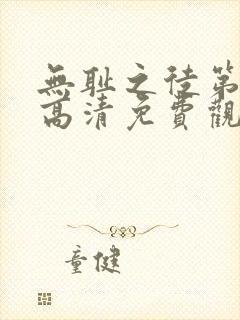 無耻之徒第
高清免費觀
童健